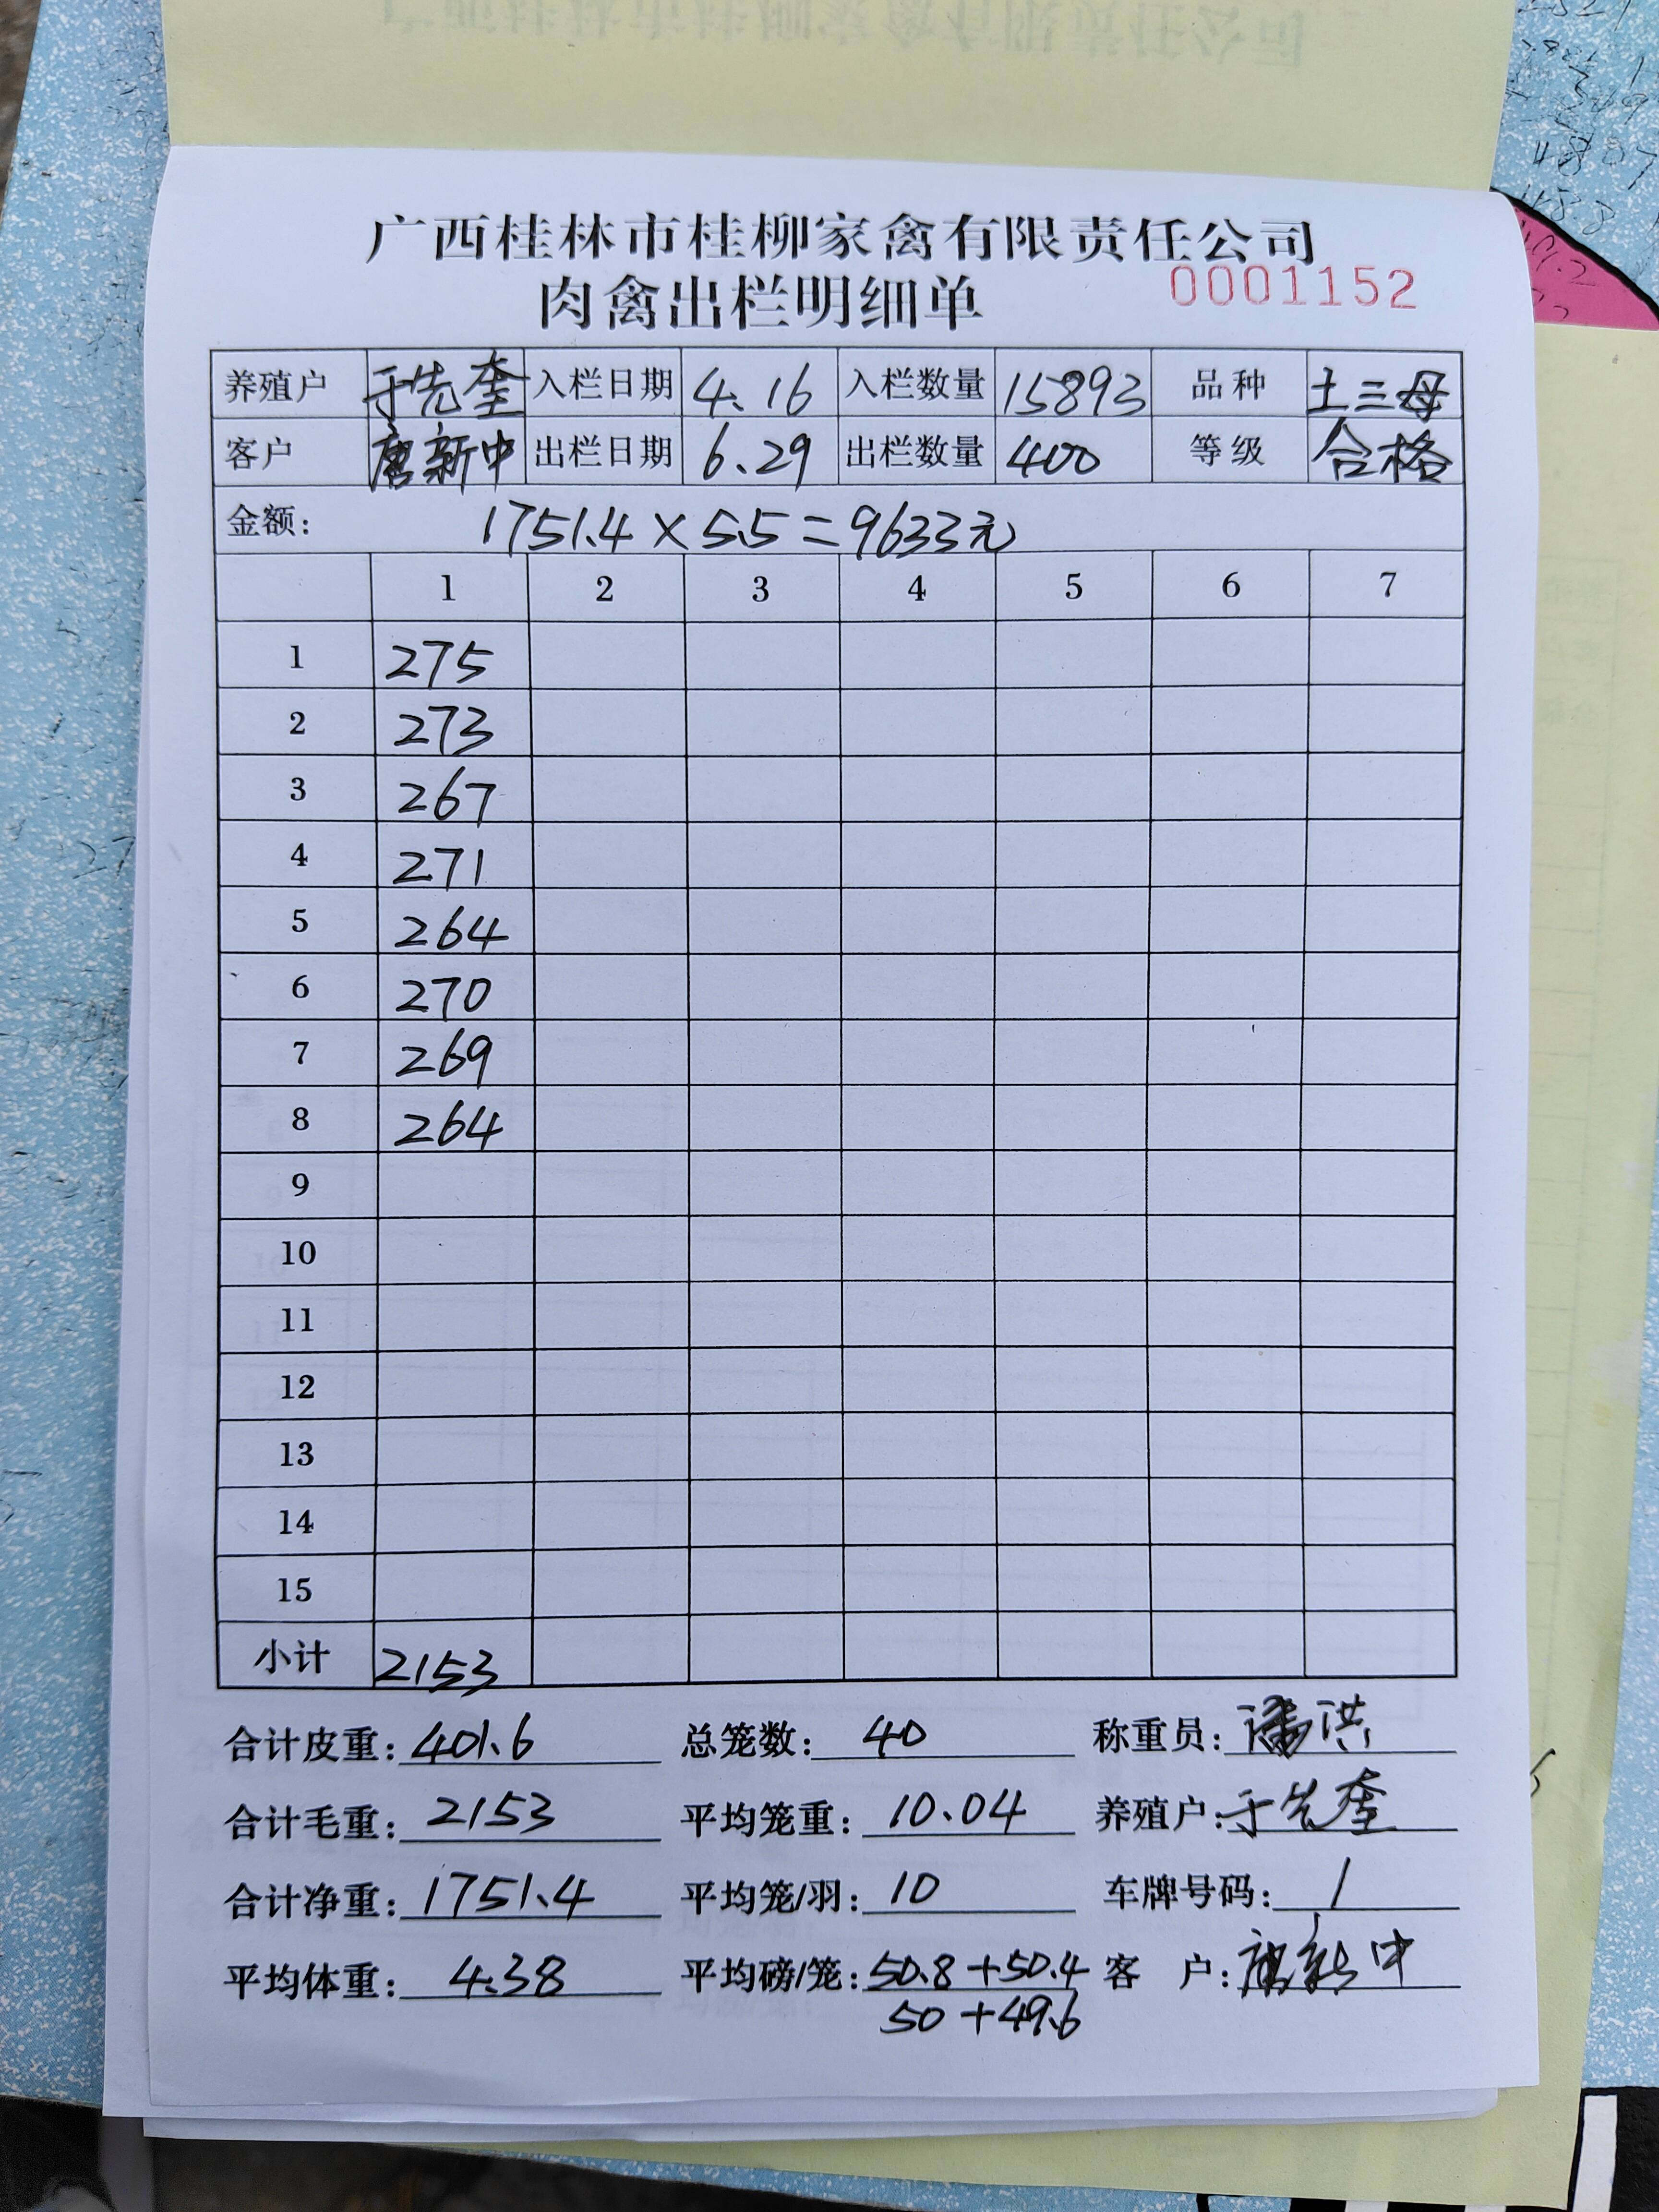 广西桂林市桂柳家禽有限责任公司
肉禽出栏明细单 0001152
养殖户 于先奎 入栏日期 4.16 入栏数量 15893 品种 土三母
客户 唐新中 出栏日期 6.29 出栏数量 400 等级 合格
金额: 1751.4×5.5=9633元
1 2 3 4 5 6 7
1 275
2 273
3 267
4 271
5 264
6 270
7 269
8 264
9
10
11
12
13
14
15
小计 2153
合计皮重: 401.6 总笼数: 40 称重员: 潘洪
合计毛重: 2153 平均笼重: 10.04 养殖户: 于先奎
合计净重: 1751.4 平均笼/羽: 10 车牌号码: 1
平均体重: 4.38 平均磅/笼: 50.8+50.4 客 户: 唐新中
50+49.6